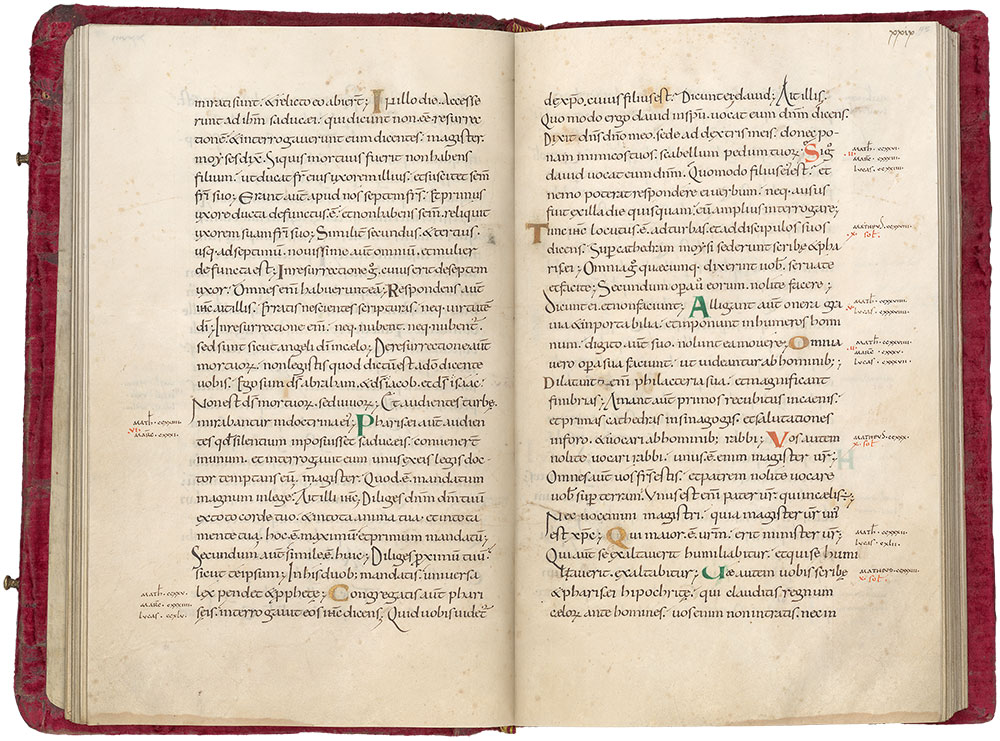 mirati sunt. & relicto eo abier̄t; In illo die. Accesse
runt ad ihm̄ saducæi. qui dicunt non .ē. resurrec
tionē. & interrogaverunt eum dicentes; magister.
moyses dix̄. Si quis mortuus fuerit non habens
filium. ut ducat fr̄ eius uxorem illius. et suscitet sem̄
fr̄i suo; Erant aut̄. apud nos septem fr̄s. Et primus
uxore ducta defunctus .ē. et non habens sem̄. reliquit
uxorem suam fr̄i suo; Similit̄ secundus. & tertius.
usq. ad septimū. novissime aut̄. omniū. et mulier
defuncta est; In resurrectione ḡ. cuius erit de septem
uxor. Omnes enī habuerunt eā; Respondens aut̄
ihc̄. ait illis. Erratis nescientes scripturas. neq. virtutē
dī; In resurrectione enī. neq. nubent. neq. nubent̄.
sed sunt sicut angeli dī in cælo; De resurrectione aut̄
mortuoꝝ. non legistis quod dictū est. a dō dicente
vobis. Ego sum ds̄ abraham. & ds̄ iacob. et ds̄ isaac.
Non est ds̄ mortuoꝝ. sed vivoꝝ; Et audientes turbę.
mirabantur in doctrina ei; Pharisei aut̄ audien
tes qđ silentium imposuisset saducæis. convenerŧ
in unum. et interrogavit eum unus ex eis legis doc
tor temptans eū. magister. Quod .ē. mandatum
magnum in lege; Ait illi ihc̄; Diliges dnm̄ dm̄ tuū
ex toto corde tuo. & in tota anima tua. et in tota
mente tua. hoc .ē. maximū et primum mandatū;
Secundum aut̄ simile .ē. huic; Diliges pximum tuū
sicut te ipsum; In his duob; mandatis. universa
lex pendet & pphetę; Congregatis aut̄ phari
seis. interrogavit eos ihc̄ dicens; Quid vobis videt̄
math̄. ccxxiii.
vi.
marc̄. cxxxi.
math̄. ccxxv.
marc̄. cxxxiii.
lucas. ccxlv.
xxxix
de xp̄o. cuius filius est. Dicunt ei. david; Ait illis.
Quo modo ergo david in spū. vocat eum dnm̄ dicens.
Dixit dns̄ dno meo. sede ad dextris meis. donec po
nam inimicos tuos. scabellum pedum tuoꝝ; Si ḡ
david vocat eum dnm̄. Quomodo filius ei est; et
nemo poterat respondere ei verbum. neq. ausus
fuit ex illa die quisquam. eū amplius interrogare;
Tunc ihc̄ locutus .ē. ad turbas. et ad discipulos suos
dicens. Sup cathedram moysi sederunt scribę & pha
risei; Omnia ḡ quæcumq. dixerint vob. servate
et facite; Secundum opa v̄ eorum. nolite facere;
Dicunt ei. et non faciunt; Alligant aut̄ onera gra
via & importabilia. et imponunt in humeros homi
num. digito aut̄ suo. nolunt ea movere; Omnia
vero opa sua faciunt. ut videantur ab hominib;
Dilatant enī philacteria sua. et magnificant
fimbrias; Amant aut̄ primos recubitus in cænis.
et primas cathedras in sinagogis. et salutationes
in foro. & vocari ab hominib; rabbi; Vos autem
nolite vocari rabbi. unus .ē. enim magister vr̄.
Omnes aut̄ vos fr̄s estis. et patrem nolite vocare
vob sup terram. Unus est enī pater vr̄. qui in cælis .ē;
Nec vocemini magistri. quia magister vr̄ un
est xp̄c; Qui maior .ē. vr̄m. erit minister vr̄;
Qui aut̄ se exaltaverit humiliabitur. et qui se humi
liaverit. exaltabitur; Væ autem vobis scribę
& pharisei hipochritę. qui clauditis regnum
cæloꝝ ante homines. vos enim non intratis. nec in
math̄. ccxxvi.
ii.
marc̄. cxxxiiii.
math̄. ccxxviii.
lucas. cxxxviii.
math̄. ccxxviiii.
marc̄. cxxxv.
math̄. ccxxxi.
lucas. ccxiii.